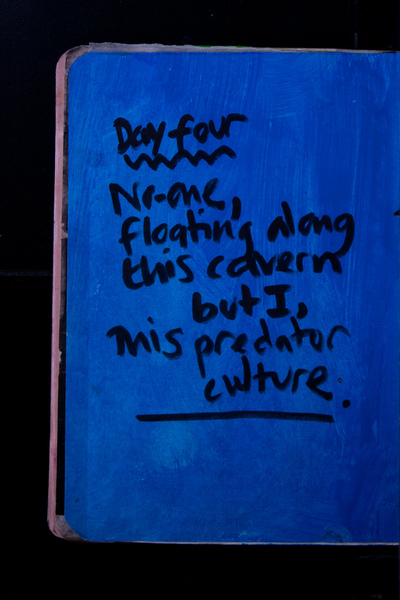 Day four
No-one,
floating along
this cavern
but I,
this predator
culture.